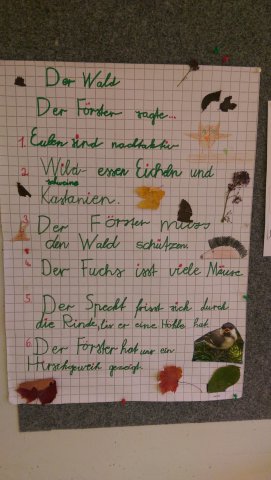 Der Wald
Der Förster sagte...
1. Eulen sind nachtaktiv
2. Wild- essen Eicheln und
schweine
Kastanien.
3. Der Förster muss
den Wald schützen.
4. Der Fuchs isst viele Mäuse
5. Der Specht frisst sich durch
die Rinde, bis er eine Höhle hat.
6. Der Förster hat uns ein
Hirschgeweih gezeigt.